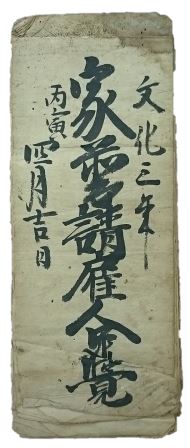 文化三年
家普請雇人覺
丙寅 四月吉日